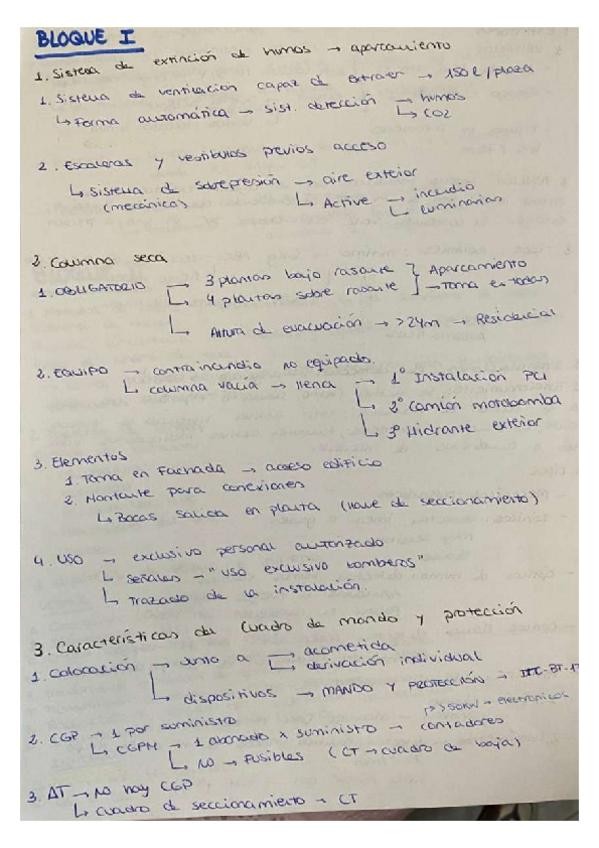 BLOQUE I
1. Sistema de extinción de humos → aparcamiento
1. Sistema de ventilacion capaz de extraer → 150 l/plaza
↳ Forma automática → sist. detección → humos
↳ CO2
2. Escaleras y vestibulos previos acceso
↳ Sistema de sobrepresión → aire exterior
(mecánica) ↳ Active → incendio
↳ luminarias
2. Columna seca
1. OBLIGATORIO → 3 plantas bajo rasante } Aparcamiento
↳ 4 plantas sobre rasante } → Toma en todas
↳ Altura de evacuación → >24m → Residencial
2. EQUIPO → contraincendio no equipado.
↳ columna vacía → llena → 1º Instalación PCI
↳ 2º Camión motobomba
↳ 3º Hidrante exterior
3. Elementos
1. Toma en Fachada → acceso edificio
2. Montante para conexiones
↳ Bocas salida en planta (llave de seccionamiento)
4. USO → exclusivo personal autorizado
↳ señales → "USO exclusivo bomberos"
↳ Trazado de la instalación.
3. Características del Cuadro de mando y protección
1. Colocación → Junto a → acometida
↳ derivación individual
↳ dispositivos → MANDO Y PROTECCIÓN → ITC-BT-17
2. CGP → 1 por suministro
P>50KW → electronicos
↳ CGPM → 1 abonado x suministro → contadores
↳ NO → Fusibles (CT → cuadro de baja)
3. AT → NO hay CGP
↳ cuadro de seccionamiento → CT